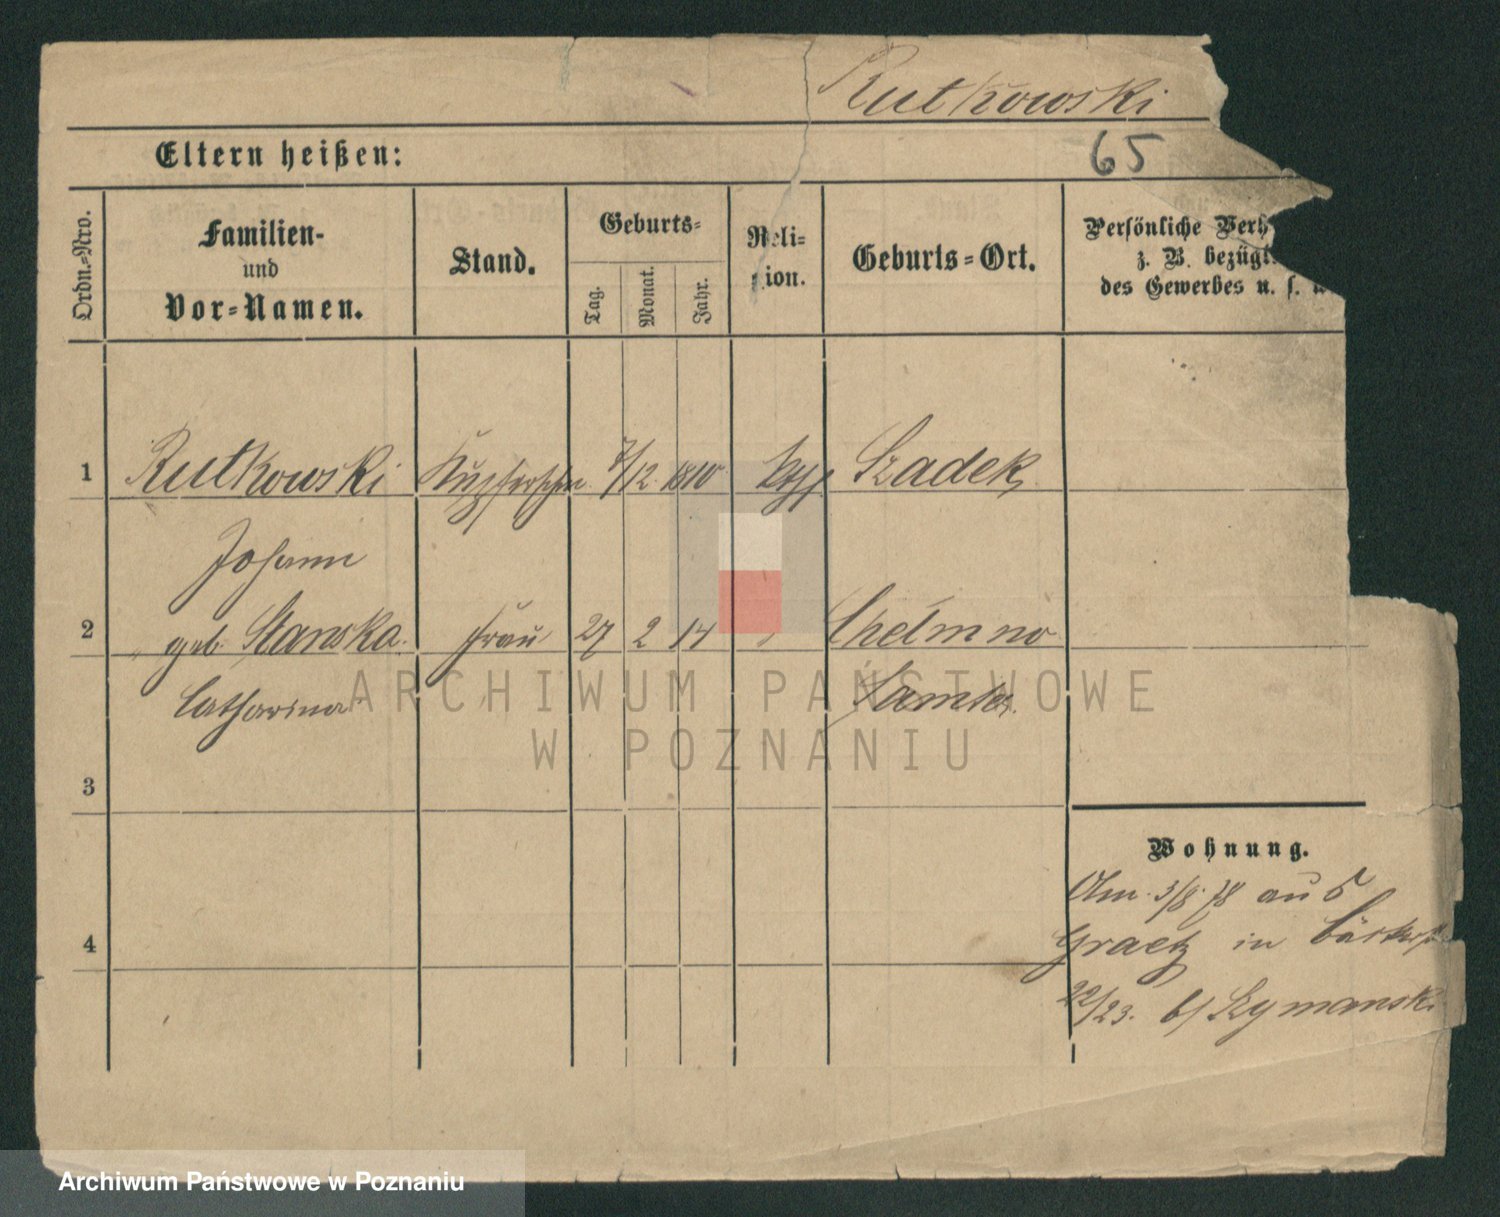 Rutkowski
65
Eltern heißen:
Ordn.-Nro.
Familien- und Vor-Namen.
Stand.
Geburts-
Tag.
Monat.
Jahr.
Reli-
gion.
Geburts-Ort.
Persönliche Verh
z. B. bezügl.
des Gewerbes u. s. w
1 Rutkowski Kupferschm. 7/12 1810 kath Szadek
Johann
2 geb. Stanska Frau 27 2 14 " Chelmno
Catharina Samter
3
Wohnung.
Am 3/8 78 aus
4 Graetz in Bäckerstr
22/23. b/ Szymanski
ARCHIWUM PAŃSTWOWE
W POZNANIU
Archiwum Państwowe w Poznaniu